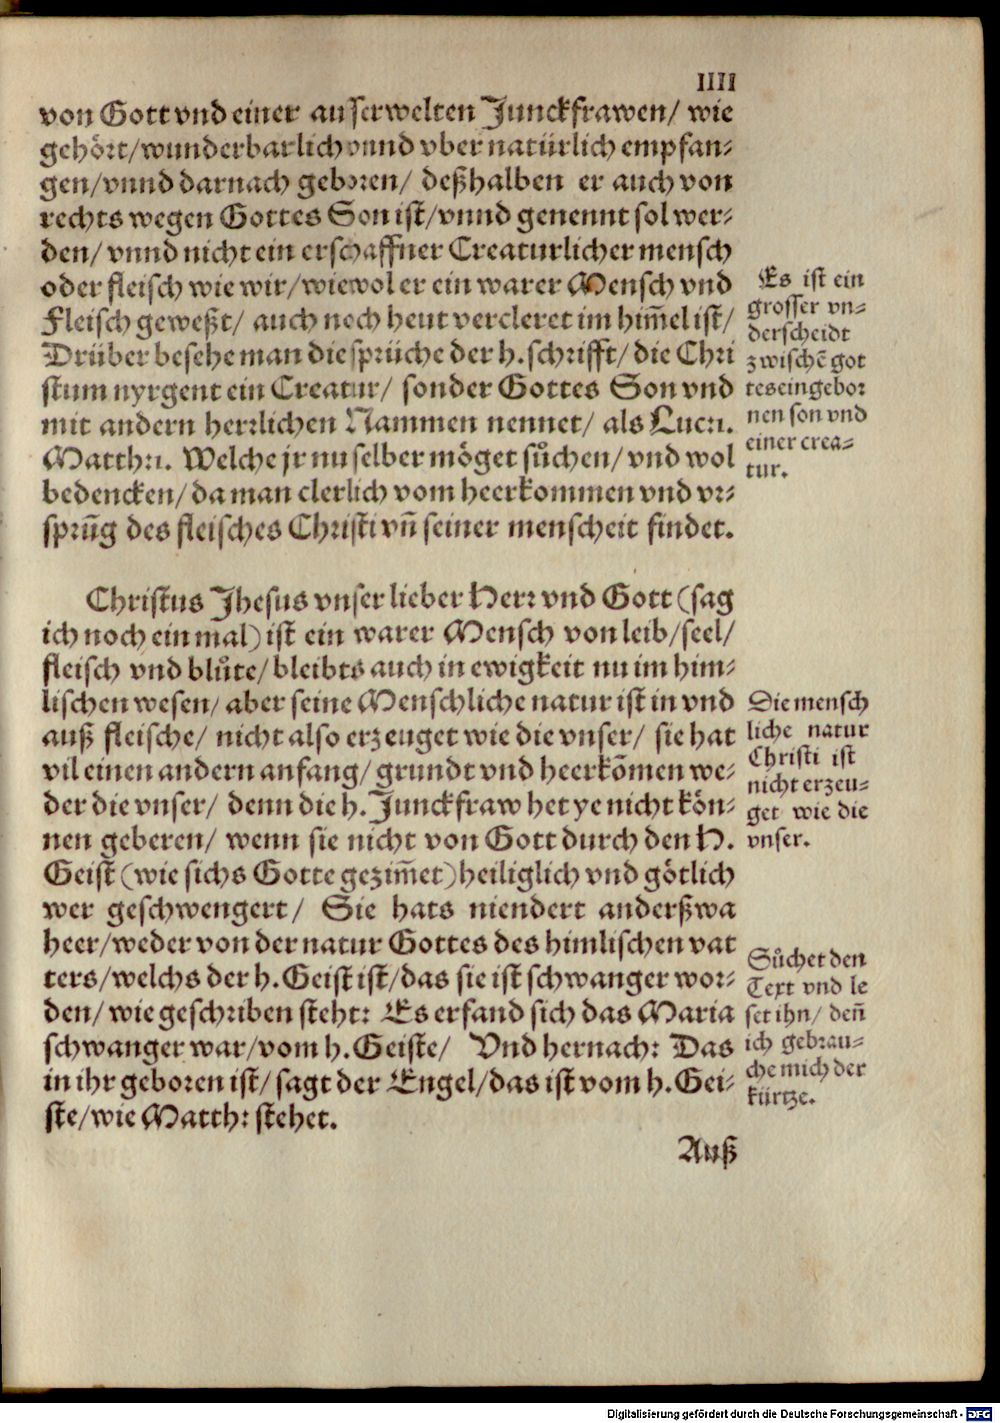 IIII
von Gott vnd einer ausserwelten Junckfrawen/ wie
gehört/wunderbarlich vnnd vbernatürlich empfan-
gen/vnnd darnach geboren/ deßhalben er auch von
rechts wegen Gottes Son ist/vnnd genennt sol wer-
den/ vnnd nicht ein erschaffner Creaturlicher mensch
oder fleisch wie wir/wiewol er ein warer Mensch vnd
Fleisch geweßt/ auch noch heut vercleret im him̃el ist/
Drüber besehe man die sprüche der h. schrifft/ die Chri
stum nyrgent ein Creatur/ sonder Gottes Son vnd
mit andern herrlichen Nammen nennet/ als Luc:1.
Matth:1. Welche jr nu selber möget sůchen/ vnd wol
bedencken/ da man clerlich vom heerkommen vnd vr-
sprũg des fleisches Christi vñ seiner menscheit findet.
Es ist ein
grosser vn-
derscheidt
zwischẽ got
tes eingebor
nen son vnd
einer crea-
tur.
Christus Jhesus vnser lieber Herr vnd Gott (sag
ich noch ein mal) ist ein warer Mensch von leib/seel/
fleisch vnd blůte/ bleibts auch in ewigkeit nu im him-
lischen wesen/ aber seine Menschliche natur ist in vnd
auß fleische/ nicht also erzeuget wie die vnser/ sie hat
vil einen andern anfang/ grundt vnd heerkõmen we-
der die vnser/ denn die h. Junckfraw het ye nicht kön-
nen geberen/ wenn sie nicht von Gott durch den H.
Geist (wie sichs Gotte gezim̃et) heiliglich vnd götlich
wer geschwengert/ Sie hats niendert anderßwa
heer/weder von der natur Gottes des himlischen vat
ters/welchs der h. Geist ist/das sie ist schwanger wor-
den/ wie geschriben steht: Es erfand sich das Maria
schwanger war/vom h. Geiste/ Vnd hernach: Das
in ihr geboren ist/ sagt der Engel/das ist vom h. Gei-
ste/wie Matth: stehet.
Die mensch
liche natur
Christi ist
nicht erzeu-
get wie die
vnser.
Sůchet den
Text vnd le
set ihn/ deñ
ich gebrau-
che mich der
kürtze.
Auß
Digitalisierung gefördert durch die Deutsche Forschungsgemeinschaft - DFG